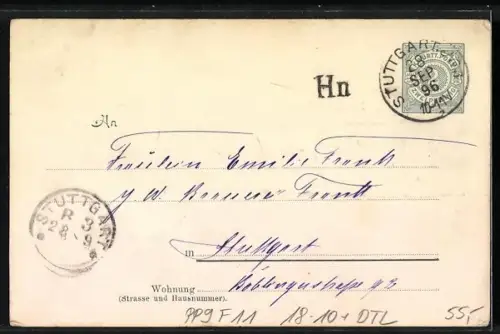 STUTTGART
28
SEP
96
10-11V
Hn
An
Fräulein Emilie Frank
Frank
in Stuttgart
Wohnung
(Strasse und Hausnummer).
Böblingerstrasse 92
STUTTGART
R 3
28 9
PP9 F11 18-10+ DTL 55,-